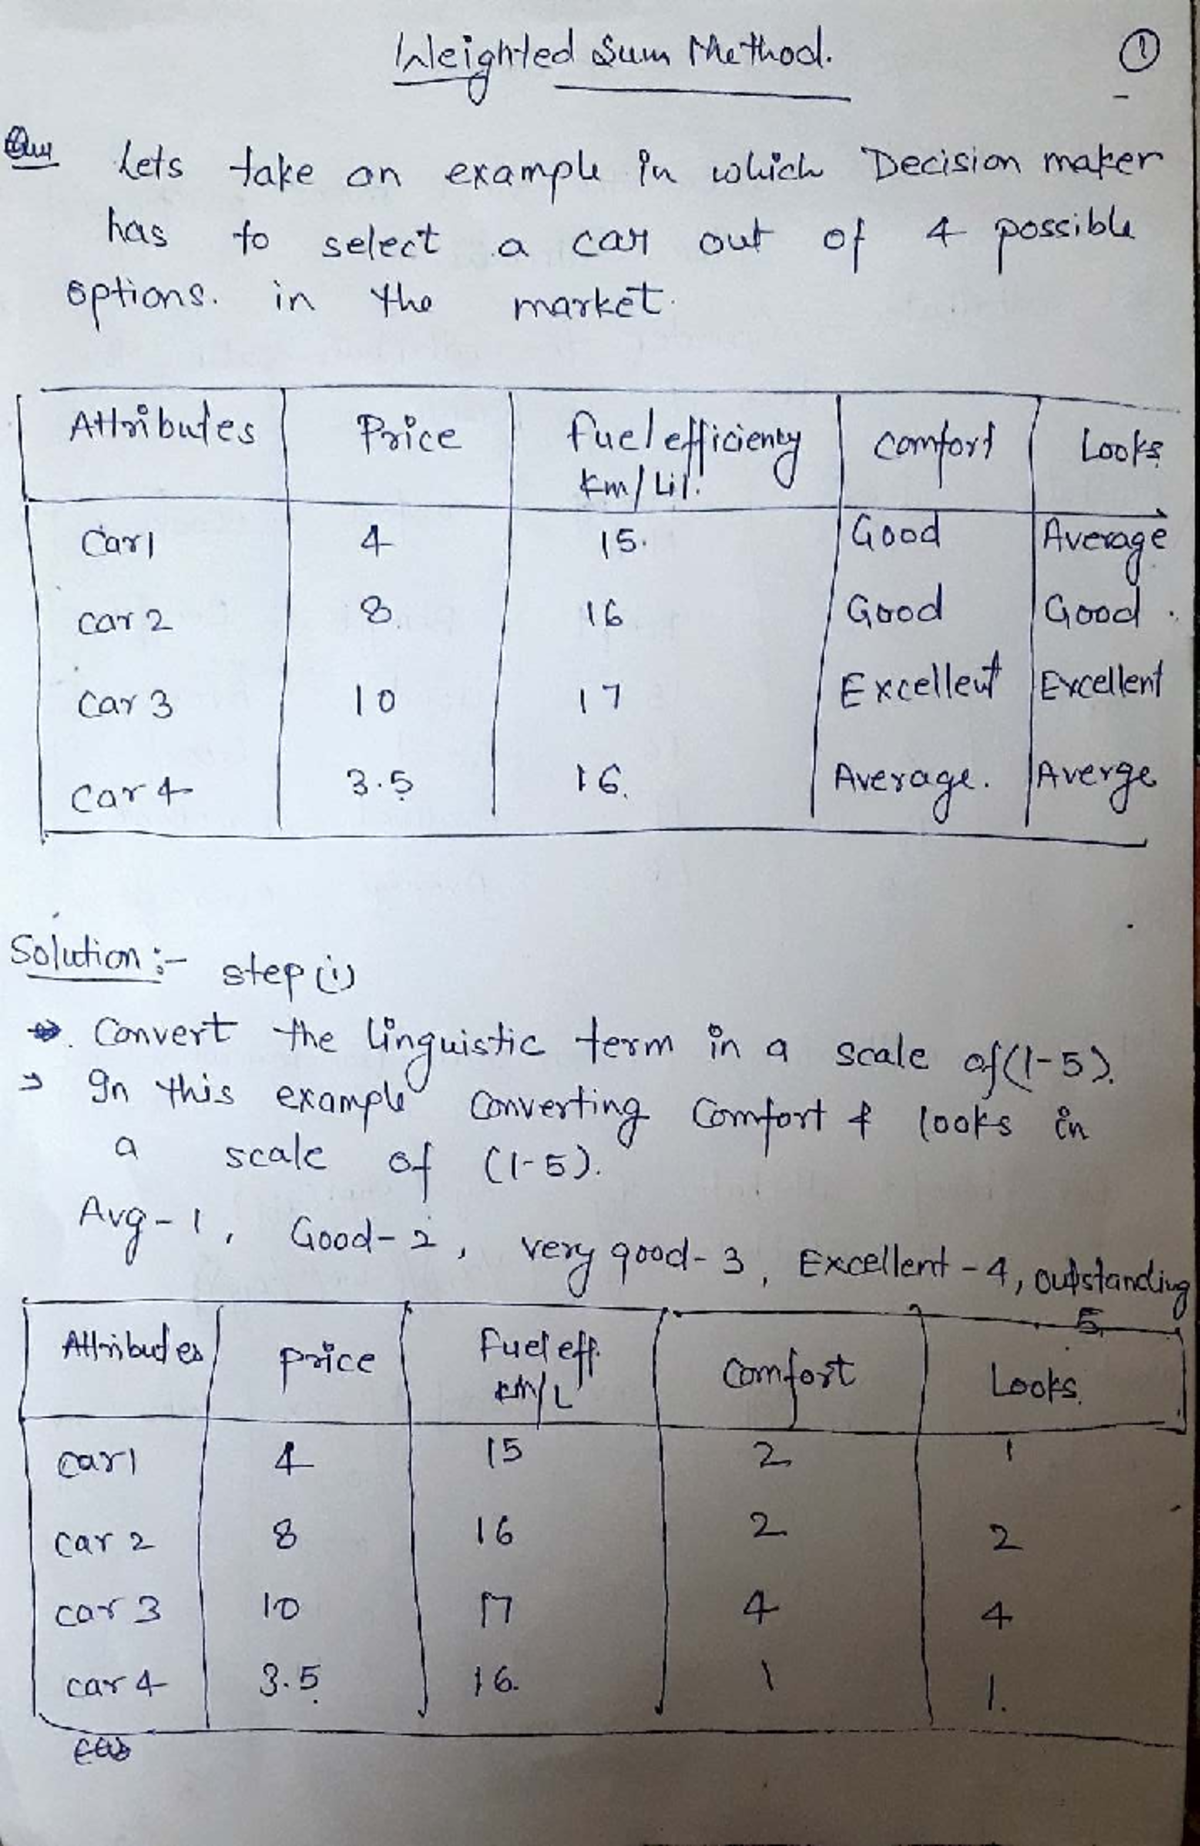 Weighted Sum Method.
1
Que Lets take an example in which Decision maker
has to select a car out of 4 possible
options. in the market.
Attributes Price Fuel efficiency Comfort Looks
Km/Lit.
Car 1 4 15. Good Average
Car 2 8. 16 Good Good.
Car 3 10 17 Excellent Excellent
Car 4 3.5 16. Average. Averge
Solution :- step (i)
Convert the linguistic term in a scale of (1-5).
→ In this example converting Comfort & looks in
a scale of (1-5).
Avg-1, Good-2, very good-3, Excellent-4, outstanding
5.
Attributes price Fuel eff. Comfort Looks.
km/L
Car 1 4 15 2 1
Car 2 8 16 2 2
Car 3 10 17 4 4
Car 4 3.5 16. 1 1.